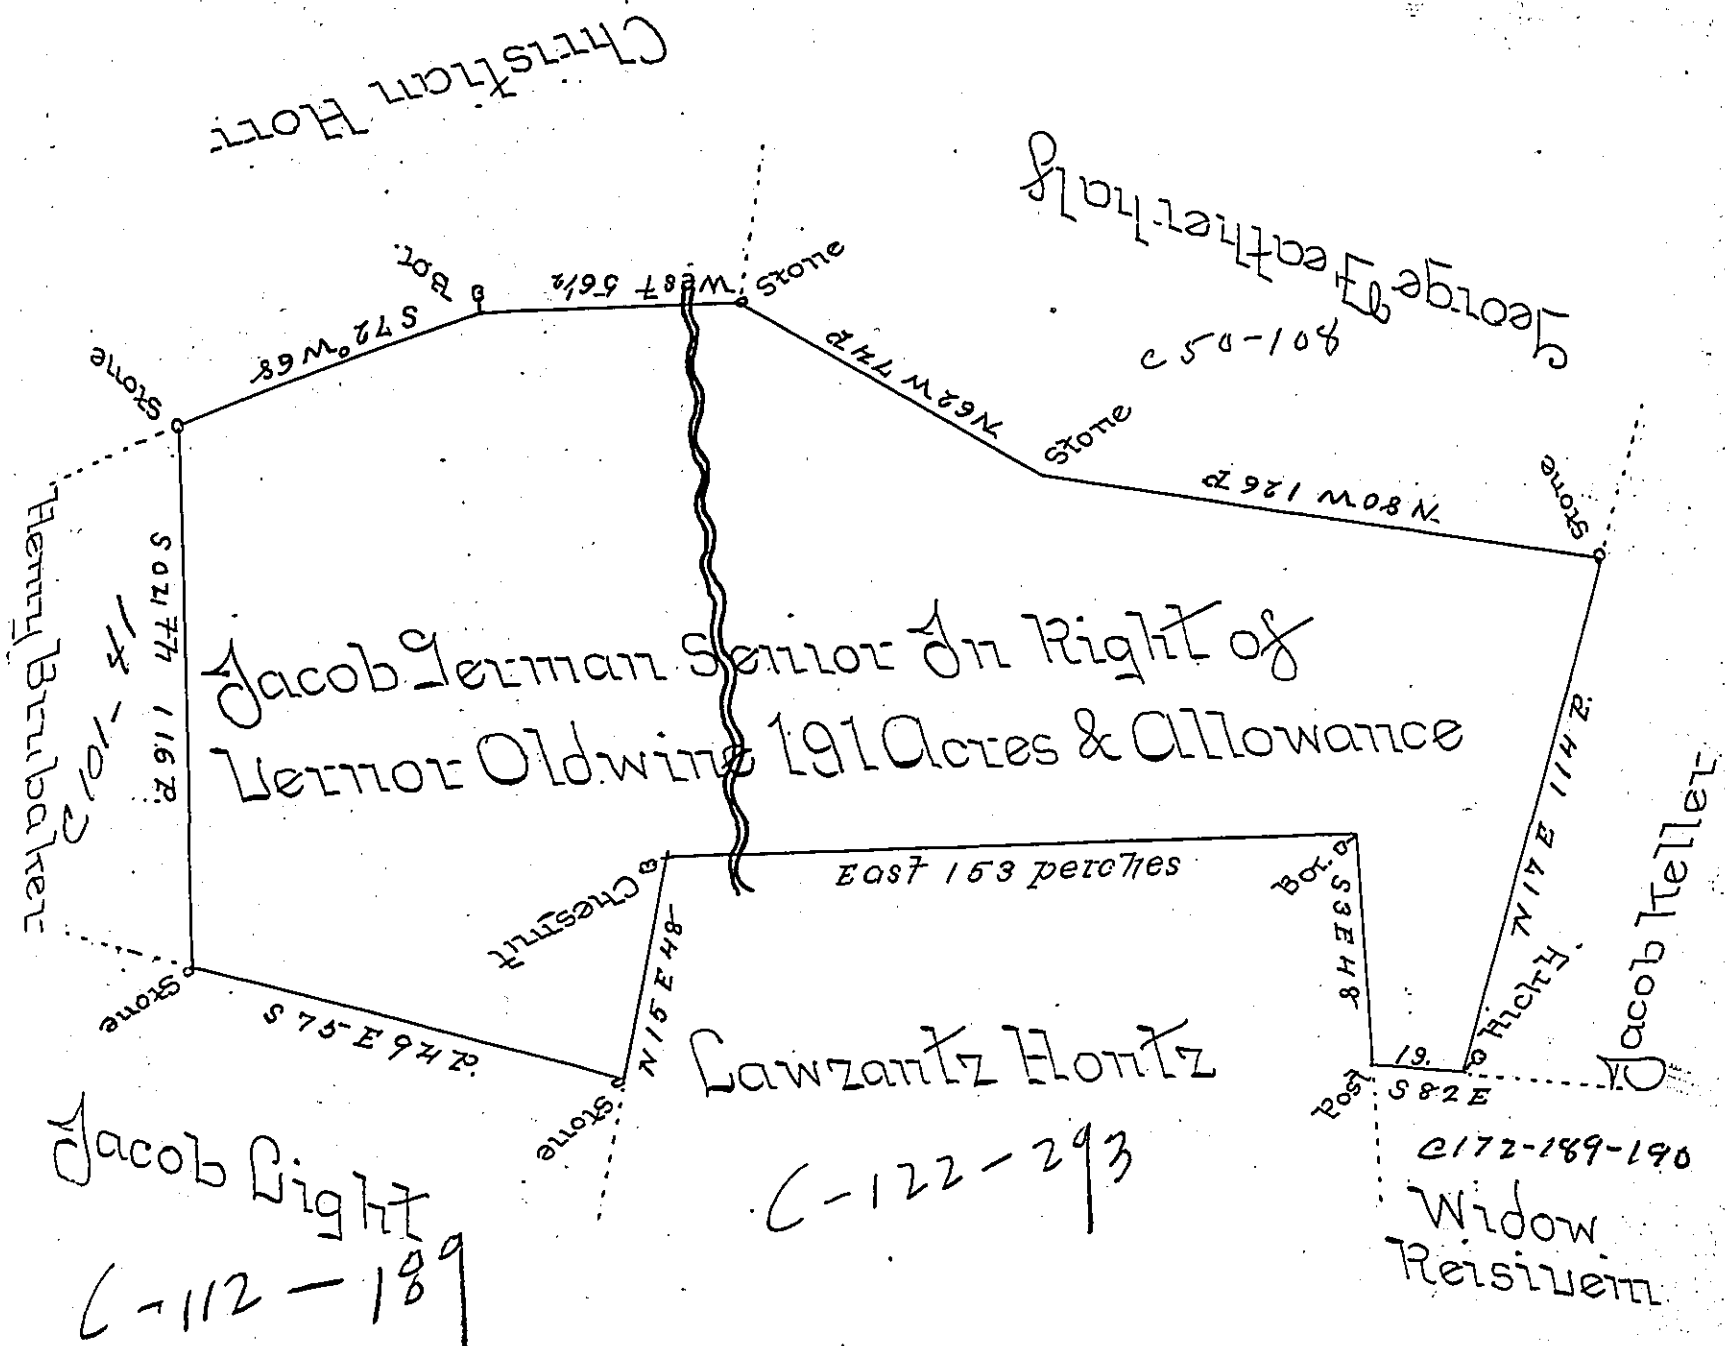 Christian Horr
George Featherhalf
C 50-108
Bot.
West 56 1/2
Stone
S 72° W 68
Stone
N 62 W 74 P
Stone
N 80 W 126 P
Stone
Henry Brubaker
C-101-41
South 116 P.
Jacob German Senior In Right of
Vernor Oldwine 191 Acres & Allowance
N 17 E 114 P.
Jacob Keller
East 153 perches
Bot.
Chesnut
S 3 E 48
N 15 E 48
Stone
S 75 E 94 P.
Stone
Hickry.
19.
S 82 E
Post
Lawrantz Hontz
C-122-293
C172-189-190
Widow
Reisivein
Jacob Light
C-112-189